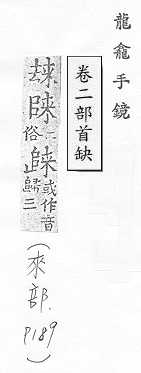 龍龕手鏡
卷二部首缺
俗
或作音
歸三
(來部.P189)